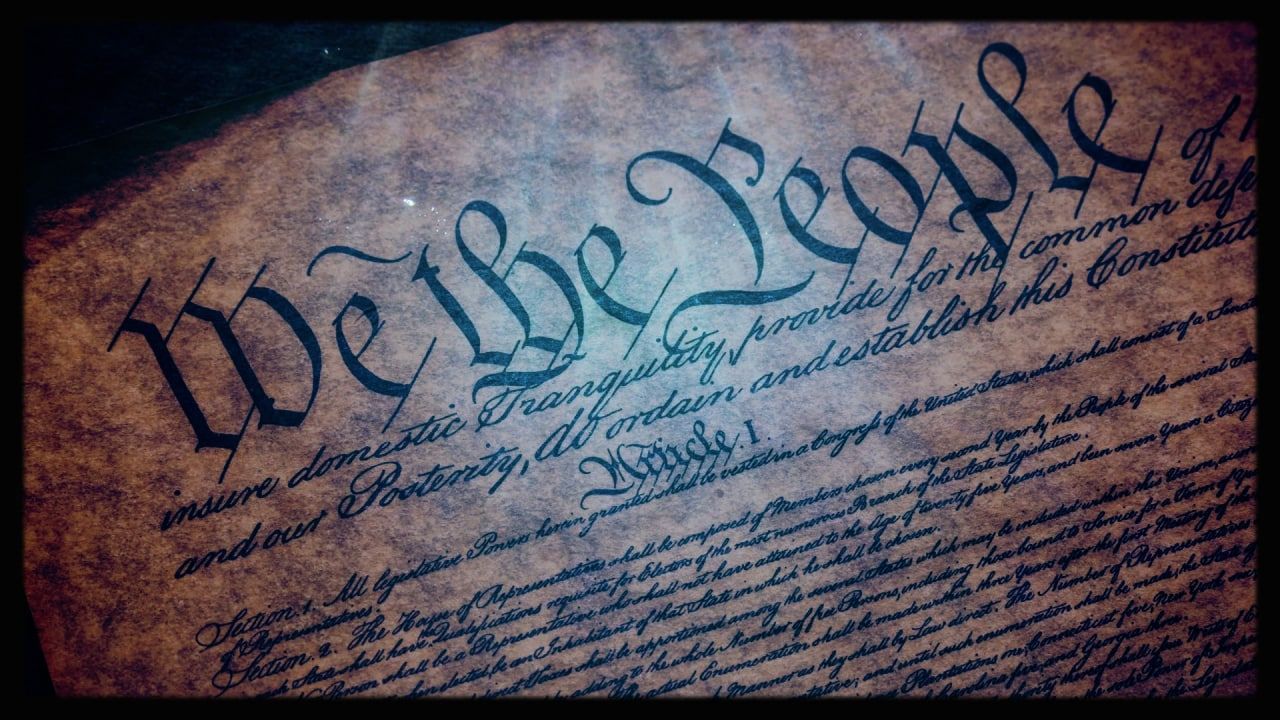 We the People of
insure domestic Tranquility, provide for the common defe
and our Posterity, do ordain and establish this Constituti
Article. I.
Section. 1. All legislative Powers herein granted shall be vested in a Congress of the United States, which shall consist of a Senat
of Representatives.
Section. 2. The House of Representatives shall be composed of Members chosen every second Year by the People of the several Sta
State shall have Qualifications requisite for Electors of the most numerous Branch of the State Legislature.
Person shall be a Representative who shall not have attained to the Age of twenty five Years, and been seven Years a Citize
when elected, be an Inhabitant of that State in which he shall be chosen.
direct Taxes shall be apportioned among the several States which may be included within this Union, accor
adding to the whole Number of free Persons, including those bound to Service for a Term of Year
actual Enumeration shall be made within three Years after the first Meeting of the
Manner as they shall by Law direct. The Number of Representatives
and until such enumeration shall be made, the State of
Plantations one, Connecticut five, New York
and Georgia three.